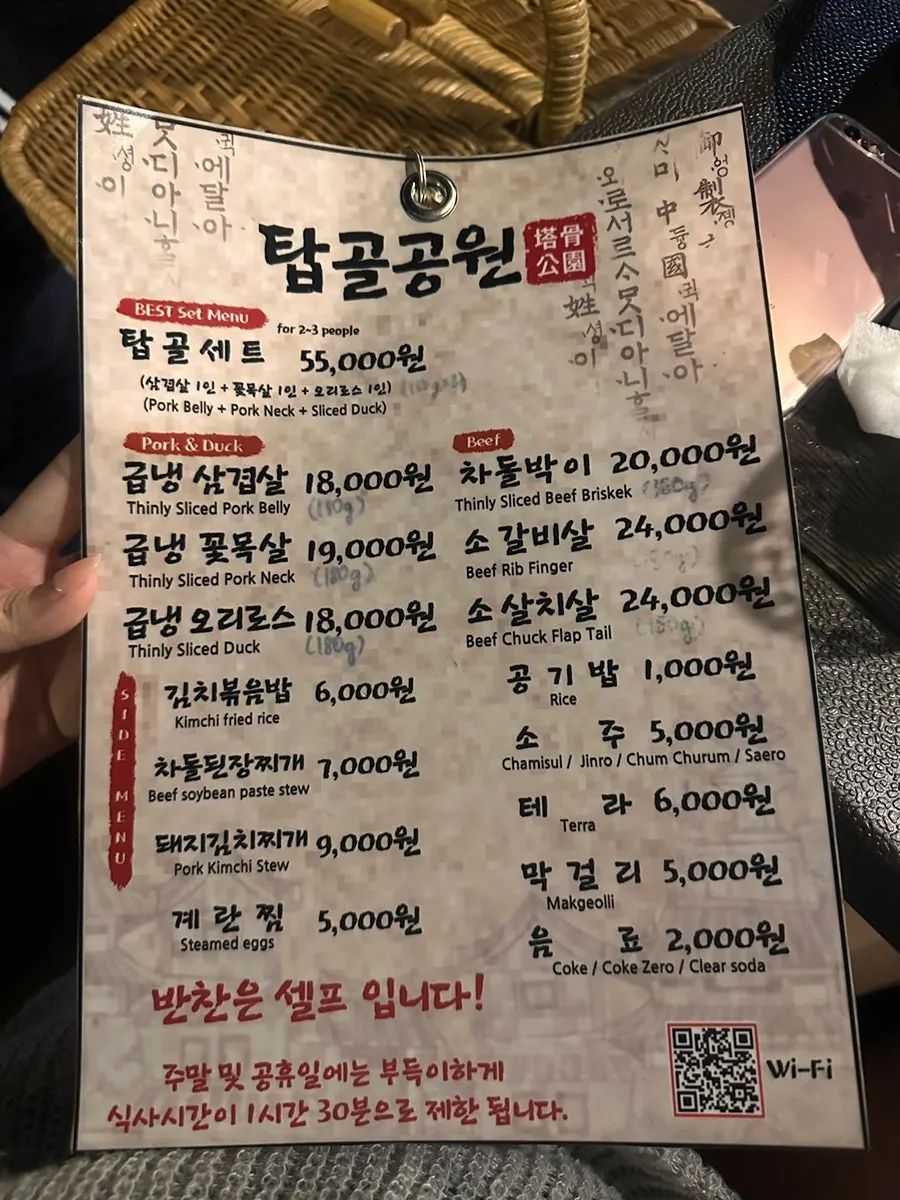 탑골공원
塔骨
公園
BEST Set Menu
for 2~3 people
탑골세트 55,000원
(삼겹살 1인 + 꽃목살 1인 + 오리로스 1인)
(Pork Belly + Pork Neck + Sliced Duck)
Pork & Duck
급냉 삼겹살 18,000원
Thinly Sliced Pork Belly (180g)
급냉 꽃목살 19,000원
Thinly Sliced Pork Neck (180g)
급냉 오리로스 18,000원
Thinly Sliced Duck (180g)
Beef
차돌박이 20,000원
Thinly Sliced Beef Briskek (180g)
소갈비살 24,000원
Beef Rib Finger
소살치살 24,000원
Beef Chuck Flap Tail (180g)
SIDE MENU
김치볶음밥 6,000원
Kimchi fried rice
차돌된장찌개 7,000원
Beef soybean paste stew
돼지김치찌개 9,000원
Pork Kimchi Stew
계란찜 5,000원
Steamed eggs
공기밥 1,000원
Rice
소주 5,000원
Chamisul / Jinro / Chum Churum / Saero
테라 6,000원
Terra
막걸리 5,000원
Makgeolli
음료 2,000원
Coke / Coke Zero / Clear soda
반찬은 셀프 입니다!
주말 및 공휴일에는 부득이하게
식사시간이 1시간 30분으로 제한 됩니다.
Wi-Fi